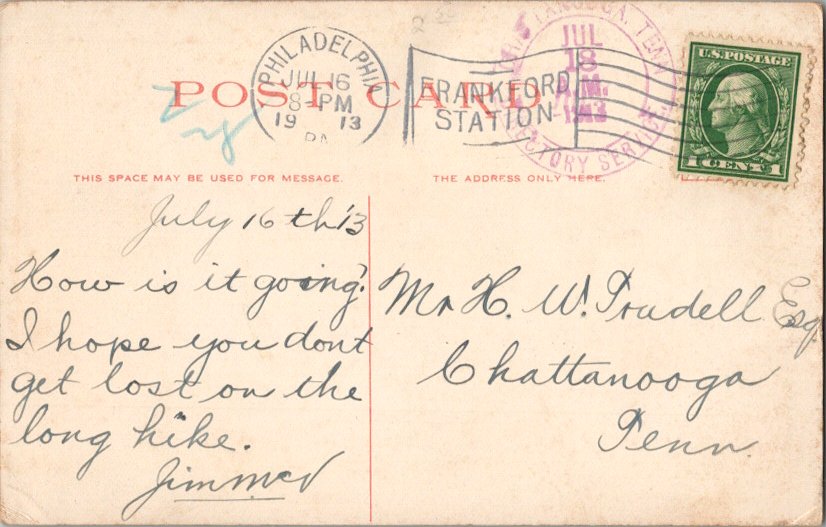 POST CARD
PHILADELPHIA
JUL 16
8-PM
19 13
PA
FRANKFORD
STATION
CHATTANOOGA, TENN.
JUL
18
1913
DIRECTORY SERVICE
U.S. POSTAGE
1 CENT 1
THIS SPACE MAY BE USED FOR MESSAGE.
THE ADDRESS ONLY HERE.
July 16th '13
How is it going?
I hope you dont
get lost on the
long hike.
Mr H. W. Trudell Esq
Chattanooga
Tenn.